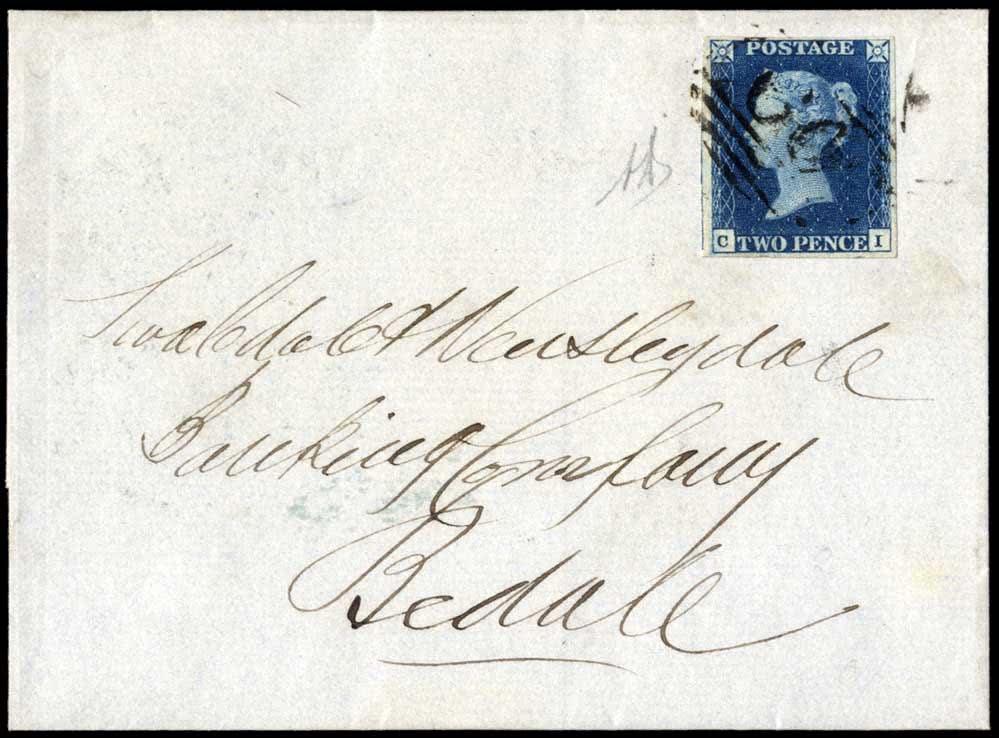 POSTAGE
C TWO PENCE I
Swaledale & Wensleydale
Banking Company
Bedale